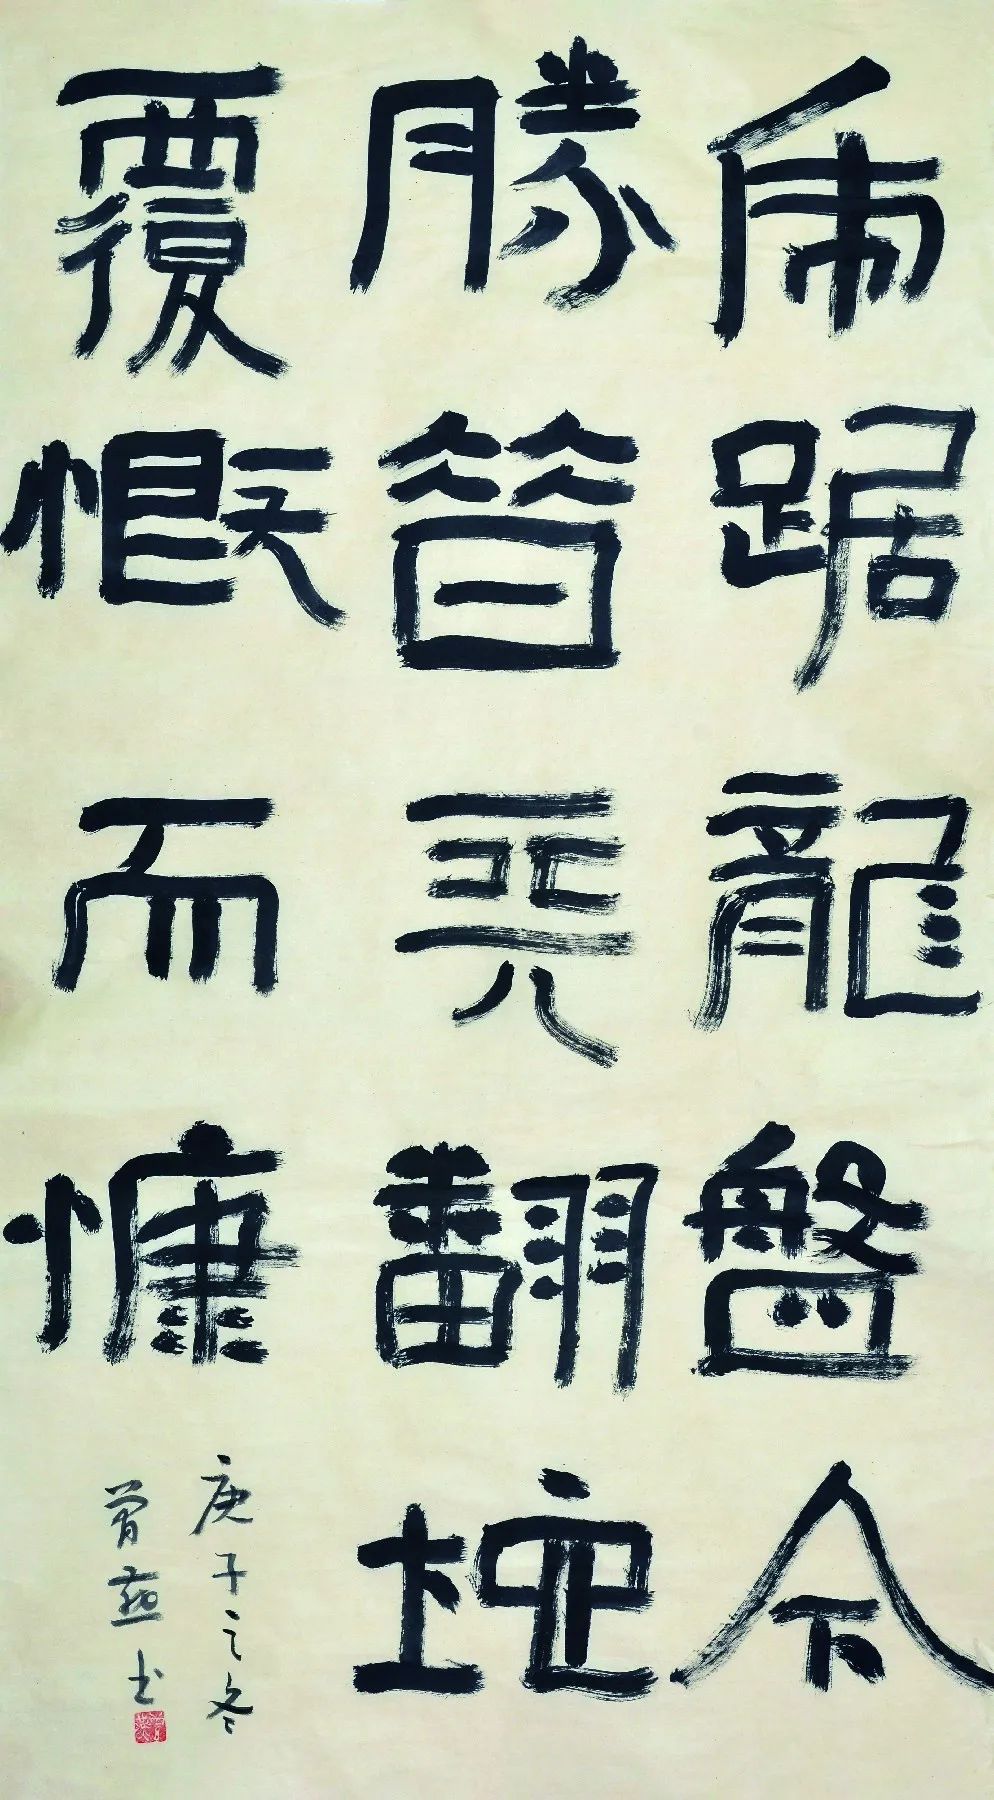 虎踞龍盤今
勝昔天翻地
覆慨而慷
庚子之冬
曾书